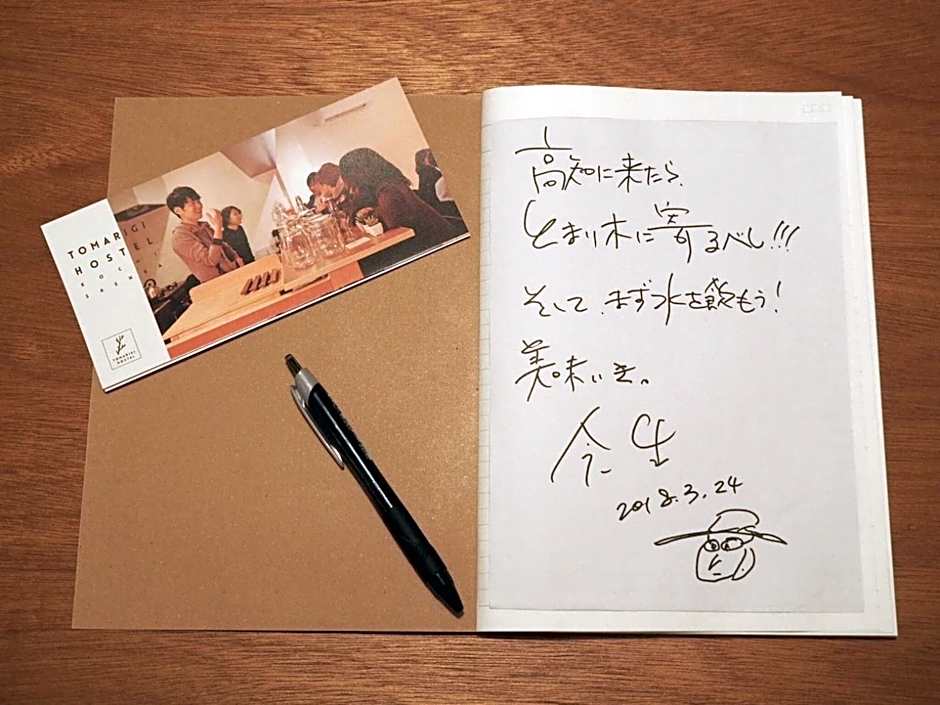 TOMARIGI
HOSTEL
KOCHI
TOMARIGI
HOSTEL
高知に来たら、
とまり木に寄るべし!!!
そして、まず水を飲もう!
美味いき。
2018.3.24